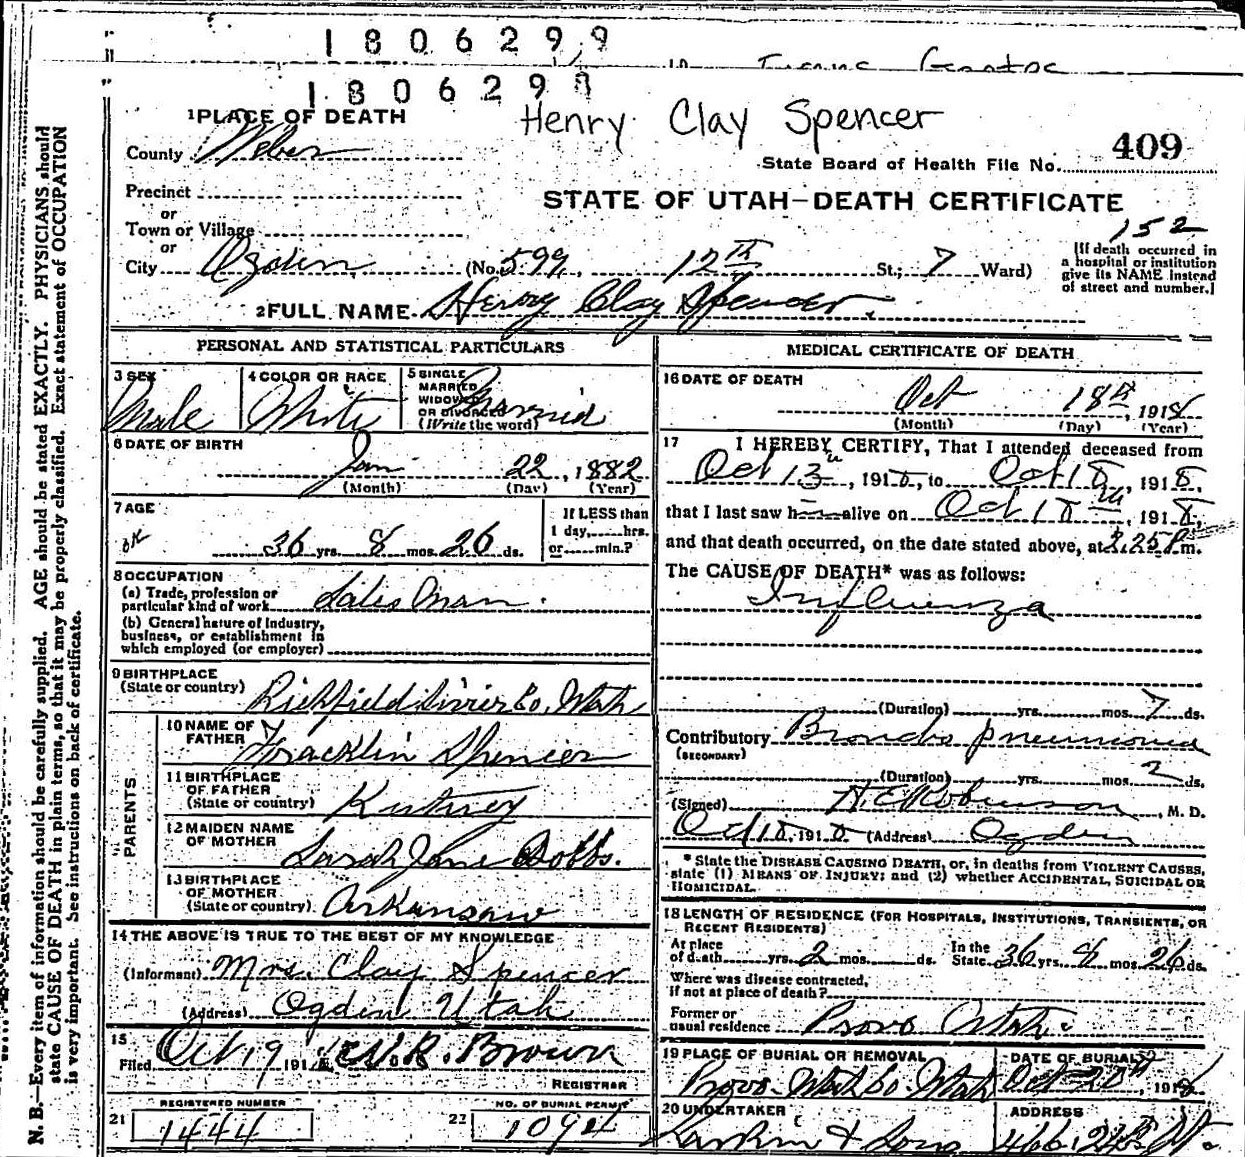 1806299
1806299
Henry Clay Spencer
1 PLACE OF DEATH
County Weber
State Board of Health File No. 409
Precinct
or
STATE OF UTAH—DEATH CERTIFICATE
Town or Village
152
or
City Ogden (No. 599, 12th St.; 7 Ward)
[If death occurred in
a hospital or institution
give its NAME instead
of street and number.]
2 FULL NAME Henry Clay Spencer.
PERSONAL AND STATISTICAL PARTICULARS
3 SEX
Male
4 COLOR OR RACE
White
5 SINGLE
MARRIED
WIDOWED
OR DIVORCED
(Write the word)
Married
6 DATE OF BIRTH
Jan 22, 1882
(Month) (Day) (Year)
7 AGE
ok
36 yrs. 8 mos. 26 ds.
If LESS than
1 day,......hrs.
or......min.?
8 OCCUPATION
(a) Trade, profession or
particular kind of work Salesman.
(b) General nature of Industry,
business, or establishment in
which employed (or employer)
9 BIRTHPLACE
(State or country) Richfield Sivier Co, Utah
PARENTS
10 NAME OF
FATHER Fracklin Spencer
11 BIRTHPLACE
OF FATHER
(State or country)
12 MAIDEN NAME
OF MOTHER Sarah Jane Dobbs.
13 BIRTHPLACE
OF MOTHER
(State or country) Arkansaw
14 THE ABOVE IS TRUE TO THE BEST OF MY KNOWLEDGE
(Informant) Mrs. Clay Spencer
(Address) Ogden Utah
15
Filed Oct 19 191 Brown
REGISTRAR
REGISTERED NUMBER
21 1444
NO. OF BURIAL PERMIT
22 1094
MEDICAL CERTIFICATE OF DEATH
16 DATE OF DEATH
Oct 18th, 1918
(Month) (Day) (Year)
17 I HEREBY CERTIFY, That I attended deceased from
Oct 13, 1918, to Oct 18, 1918,
that I last saw h alive on Oct 18th, 1918,
and that death occurred, on the date stated above, at 3.25 P.m.
The CAUSE OF DEATH* was as follows:
Influenza
(Duration) yrs. mos. 7 ds.
Contributory Broncho pneumonia
(SECONDARY)
(Duration) yrs. mos. 2 ds.
(Signed) H.E. Robinson, M. D.
Oct 18, 1918 (Address) Ogden
* State the DISEASE CAUSING DEATH, or, in deaths from VIOLENT CAUSES,
state (1) MEANS OF INJURY; and (2) whether ACCIDENTAL, SUICIDAL OR
HOMICIDAL.
18 LENGTH OF RESIDENCE (FOR HOSPITALS, INSTITUTIONS, TRANSIENTS, OR
RECENT RESIDENTS)
At place
of death yrs. 2 mos. ds.
In the
State 36 yrs. 8 mos. 26 ds.
Where was disease contracted,
if not at place of death?
Former or
usual residence Provo Utah.
19 PLACE OF BURIAL OR REMOVAL
Provo. Utah Co. Utah
DATE OF BURIAL
Oct 20th, 1918
20 UNDERTAKER
Larkin & Sons
ADDRESS
466. 24th St.
N. B.—Every item of information should be carefully supplied. AGE should be stated EXACTLY. PHYSICIANS should
state CAUSE OF DEATH in plain terms, so that it may be properly classified. Exact statement of OCCUPATION
is very important. See instructions on back of certificate.